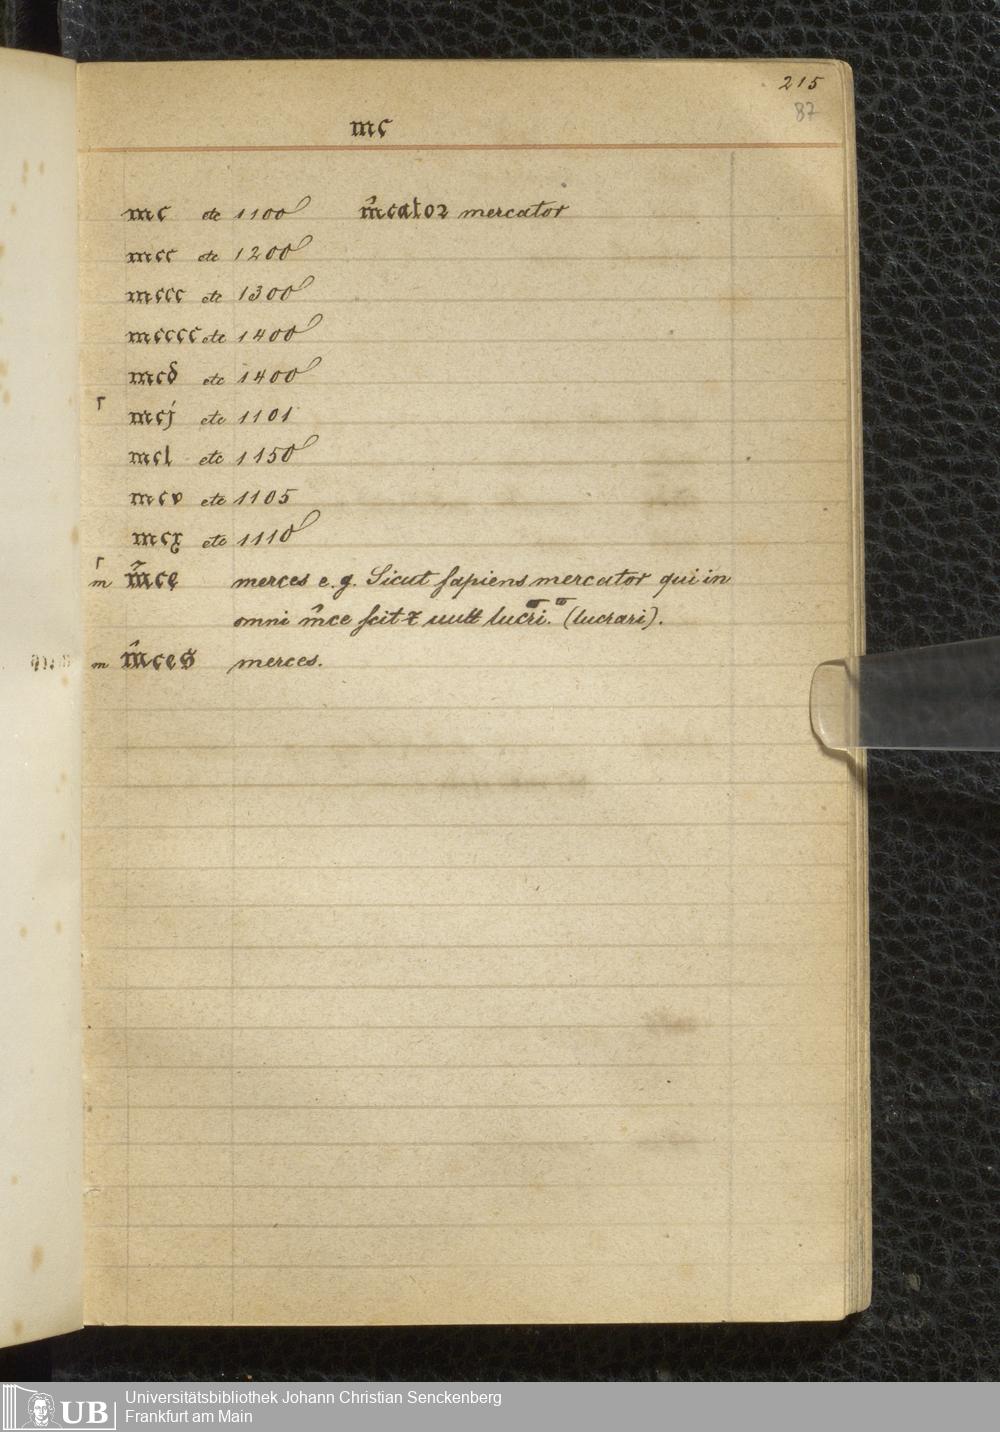 215
87
mc
mc etc 1100 m̂cator mercator
mcc etc 1200
mccc etc 1300
mcccc etc 1400
mcd etc 1400
r mcj etc 1101
mcl etc 1150
mcv etc 1105
mcx etc 1110
m m̃ce merces e.g. Sicut sapiens mercator qui in
omni m̂ce scit et uult lucri. (lucrari).
m m̂ces merces.
UB Universitätsbibliothek Johann Christian Senckenberg
Frankfurt am Main